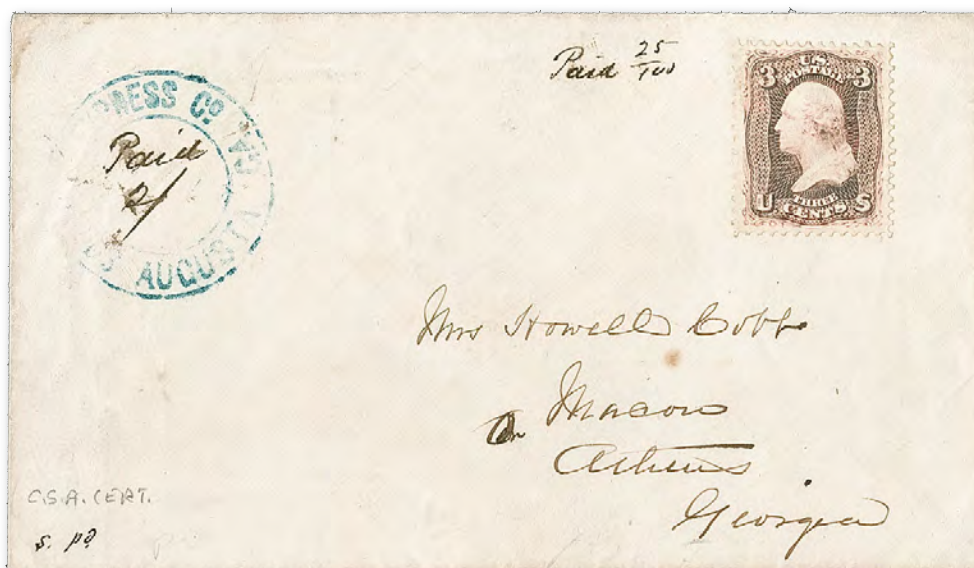 Paid 25/100
U.S.
POSTAGE
3 3
THREE
U CENTS S
RESS Co
AUGUSTA, GA.
Paid
2/
Mrs Howell Cobb
Or Macon
Athens
Georgia
C.S.A. CERT.